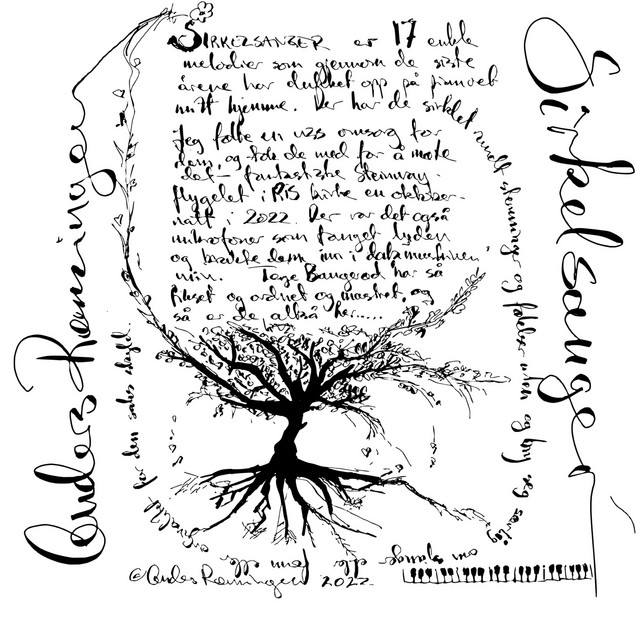 Anders Rønningen
Sirkelsanger
SIRKELSANGER er 17 enkle
melodier som gjennom de siste
årene har dukket opp på pianoet
mitt hjemme. Der har de sirklet rundt stemninger og følelser
Jeg følte en viss omsorg for
dem, og tok de med for å møte
det fantastiske Steinway-
flygelet i RIS kirke en oktober-
natt i 2022. Der var det også
mikrofoner som fanget lyden
og brakte dem inn i datamaskinen
min. Tage Bangerod har så
fikset og ordnet og mastret, og
så er de altså her.....
og jeg
om slange eller
for den saks skyld.
©Anders Rønningen 2022